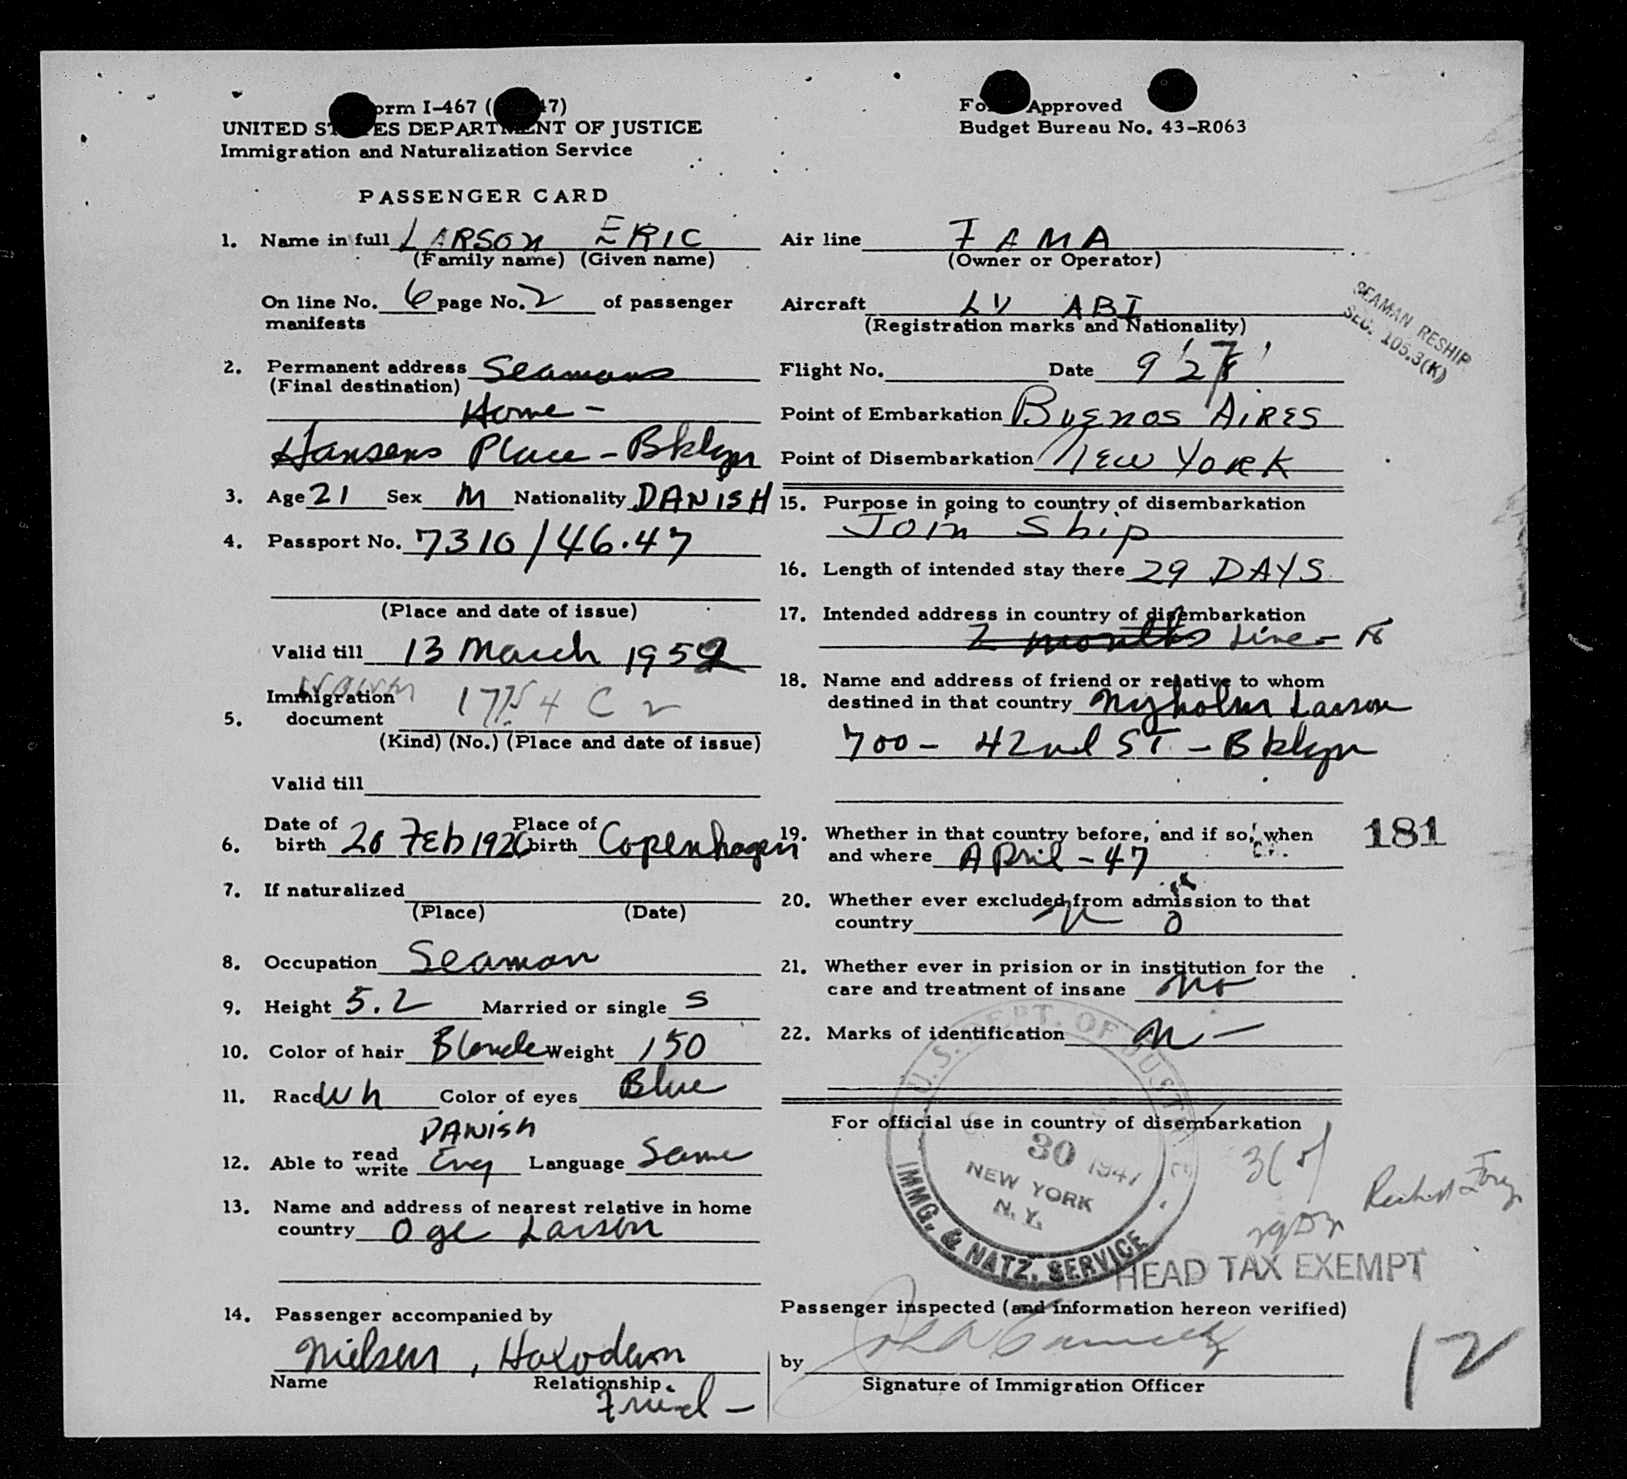 orm I-467 ( 47)
UNITED ST ES DEPARTMENT OF JUSTICE
Immigration and Naturalization Service
PASSENGER CARD
1. Name in full LARSON ERIC
(Family name) (Given name)
On line No. 6 page No. 2 of passenger
manifests
2. Permanent address Seamans
(Final destination)
Home -
Hansens Place - Bklyn
3. Age 21 Sex M Nationality DANISH
4. Passport No. 7310/46.47
(Place and date of issue)
Valid till 13 March 1952
Immigration
5. document
(Kind) (No.) (Place and date of issue)
Valid till
6. Date of birth 20 Feb 1926 Place of birth Copenhagen
7. If naturalized
(Place) (Date)
8. Occupation Seaman
9. Height 5.2 Married or single S
10. Color of hair Blonde Weight 150
11. Race Wh Color of eyes Blue
DANISH
12. Able to read write Eng Language Same
13. Name and address of nearest relative in home
country Oge Larson
14. Passenger accompanied by
Nielsen,
Name Relationship
Friend -
Fo Approved
Budget Bureau No. 43-R063
Air line FAMA
(Owner or Operator)
Aircraft LV ABI
(Registration marks and Nationality)
Flight No. Date
Point of Embarkation BUENOS AIRES
Point of Disembarkation NEW YORK
15. Purpose in going to country of disembarkation
Join Ship
16. Length of intended stay there 29 DAYS
17. Intended address in country of disembarkation
2 months
18. Name and address of friend or relative to whom
destined in that country Nyholm Larson
700 - 42nd ST. - Bklyn
19. Whether in that country before, and if so, when
and where April - 47
20. Whether ever excluded from admission to that
country No
21. Whether ever in prision or in institution for the
care and treatment of insane No
22. Marks of identification
For official use in country of disembarkation
U.S. DEPT. OF JUSTICE
30 1947
NEW YORK
N. Y.
IMMG. & NATZ. SERVICE
HEAD TAX EXEMPT
Passenger inspected (and information hereon verified)
by
Signature of Immigration Officer
SEAMAN RESHIP
SEC. 105.3(K)
181
12